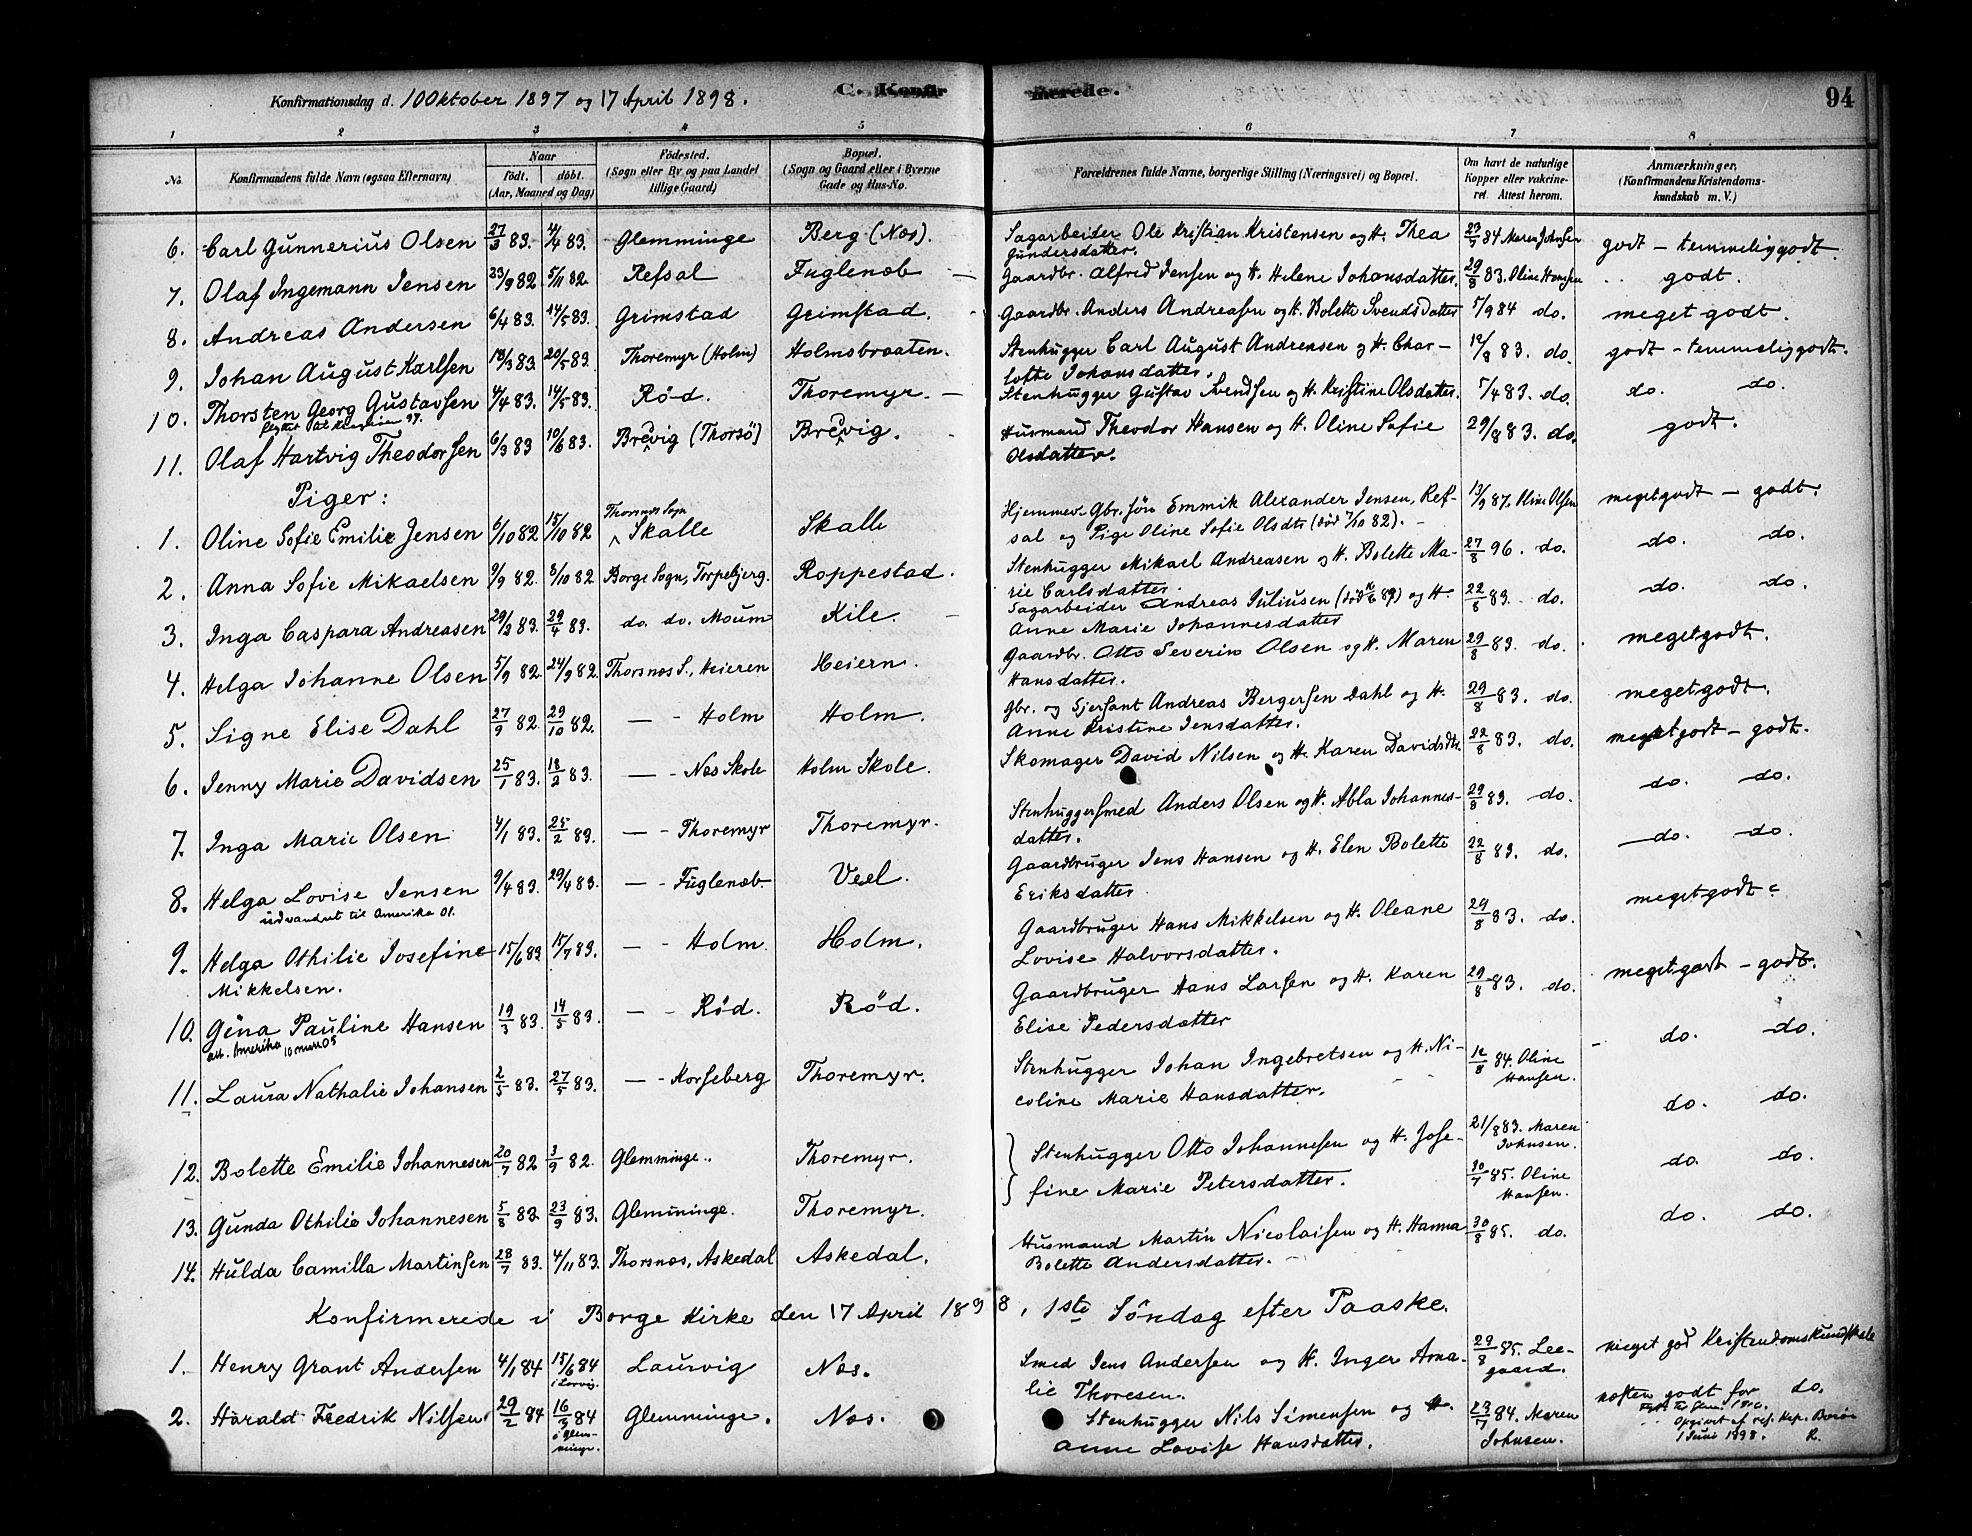 Konfirmationsdag d. 10 Oktober 1897 og 17 April 1898. C. Konfirmerede. 94
1 2 3 4 5 6 7 8
No. Konfirmandens fulde Navn (ogsaa Efternavn) Naar født. døbt. (Aar, Maaned og Dag) Fødested. (Sogn eller By og paa Landet tillige Gaard) Bopæl. (Sogn og Gaard eller i Byerne Gade og Hus-No. Forældrenes fulde Navne, borgerlige Stilling (Næringsvei) og Bopæl. Om havt de naturlige Kopper eller vakcineret. Attest herom. Anmærkninger, (Konfirmandens Kristendomskundskab m. V.)
6. Carl Gunnerius Olsen 27/3 83. 4/4 83. Glemminge Berg (Næs). Sagarbeider Ole Kristian Kristensen og H. Thea 84 Maren Johnsen godt – temmelig godt.
Gundersdatter.
7. Olaf Ingemann Jensen 23/9 82 5/11 82. Refsal Fuglenæb – Gaardbr. Alfred Jensen og H. Helene Johansdatter. 29/8 83. Oline Hansen godt.
8. Andreas Andersen 6/4 83. 14/5 83. Grimstad Grimstad. Gaardbr. Anders Andreasen og H. Bolette Svendsdatter 5/9 84 do. meget godt.
9. Johan August Karlsen 18/3 83. 20/5 83. Thoremyr (Holm) Holmsbraaten. Stenhugger Carl August Andreasen og H. Char-
lotte Johansdatter. 83. do. godt – temmelig godt.
10. Thorsten Georg Gustavsen 4/4 83. 14/5 83. Rød. Thoremyr. – Stenhugger Gustav Svendsen og H. Kristine Olsdatter. 5/4 83. do. do. do.
11. Olaf Hartvig Theodorsen 6/3 83 10/6 83. Brevig (Thorsö) Brevig. Husmand Theodor Hansen og H. Oline Sofie 29/8 83. do. godt.
Olsdatter.
Piger:
1. Oline Sofie Emilie Jensen 6/10 82 15/10 82 Thorsnæs Sogn Skalle Skalle Hjemmev. Gbr. søn Emmik Alexander Jensen, Ref- 13/9 87. Oline Olsen meget godt – godt.
sal og Pige Oline Sofie Olsdtr (død 7/10 82).
2. Anna Sofie Mikaelsen 9/9 82. 8/10 82 Borge Sogn, Torpebjerg. Roppestad. Stenhugger Mikael Andreasen og H. Bolette Ma- 27/8 96. do. do. do.
rie Carlsdatter.
3. Inga Caspara Andreasen 83. 29/4 83. do. do. Moum Kile. Sagarbeider Andreas Juliusen (død 89) og H. 22/8 83. do. do. do.
Anne Marie Johannesdatter
4. Helga Johanne Olsen 5/9 82. 24/9 82. Thorsnæs S., Heieren Heiern. Gaardbr. Otto Severin Olsen og H. Maren 29/8 83. do. meget godt.
Hansdatter.
5. Signe Elise Dahl 27/9 82 29/10 82. — - Holm Holm. Gbr. og Sjersant Andreas Bergersen Dahl og H. 29/8 83. do. meget godt.
Anne Kristine Jensdatter.
6. Jenny Marie Davidsen 25/1 83. 18/2 83. — - Næs Skole Holm Skole. Skomager David Nilsen og H. Karen Davidsdtr. 22/8 83. do. meget godt – godt.
7. Inga Marie Olsen 4/1 83. 25/2 83. — - Thoremyr Thoremyr. Stenhuggersmed Anders Olsen og H. Abla Johannes- 29/8 83. do. do. do.
datter.
8. Helga Lovise Jensen 9/4 83. 29/4 83. — - Fuglenæb. Veel. Gaardbruger Jens Hansen og H. Elen Bolette 22/8 83. do. do. do.
udvandret til Amerika 01. Eriksdatter
9. Helga Othilie Josefine 15/6 83 15/7 83. — - Holm. Holm. Gaardbruger Hans Mikkelsen og H. Oleane 29/8 83. do. meget godt
Mikkelsen. Lovise Halvorsdatter.
10. Gina Pauline Hansen 19/3 83. 14/5 83. — - Rød. Rød. Gaardbruger Hans Larsen og H. Karen 29/8 83. do. meget godt – godt.
att. Amerika 10 mars 05 Elise Pedersdatter
11. Laura Nathalie Johansen 2/5 83. 27/5 83. — - Korseberg Thoremyr. Stenhugger Johan Ingebretsen og H. Ni- 84. Oline Hansen. do. do.
coline Marie Hansdatter.
12. Bolette Emilie Johannesen 20/7 82 3/9 82. Glemminge. Thoremyr. Stenhugger Otto Johannesen og H. Jose- 21/8 83. Maren Johnsen. do. do.
fine Marie Petersdatter.
13. Gunda Othilie Johannesen 5/8 83 23/9 83. Glemminge. Thoremyr. 30/7 85. Oline Hansen. do. do.
14. Hulda Camilla Martinsen 28/7 83. 4/11 83. Thorsnæs, Askedal Askedal. Husmand Martin Nicolaisen og H. Hanna 30/8 85. do. do. do.
Bolette Andersdatter.
Konfirmerede i Borge Kirke den 17 April 1898, 1ste Søndag efter Paaske.
1. Henry Grant Andersen 4/1 84 15/6 84 i Larvig. Laurvig Næs. Smed Jens Andersen og H. Inger Ama- 29/8 85. Lee-
gaard. meget god Kristendomskundskab
lie Thoresen.
2. Harald Fredrik Nilsen 29/2 84 16/3 84 i Glemminge. Glemminge. Næs. Stenhugger Nils Simensen og H. 23/7 84. Maren Johnsen. næsten godt for do.
Anne Lovise Hansdatter. Opgivet af res. Kap. 1 Juni 1898. R.